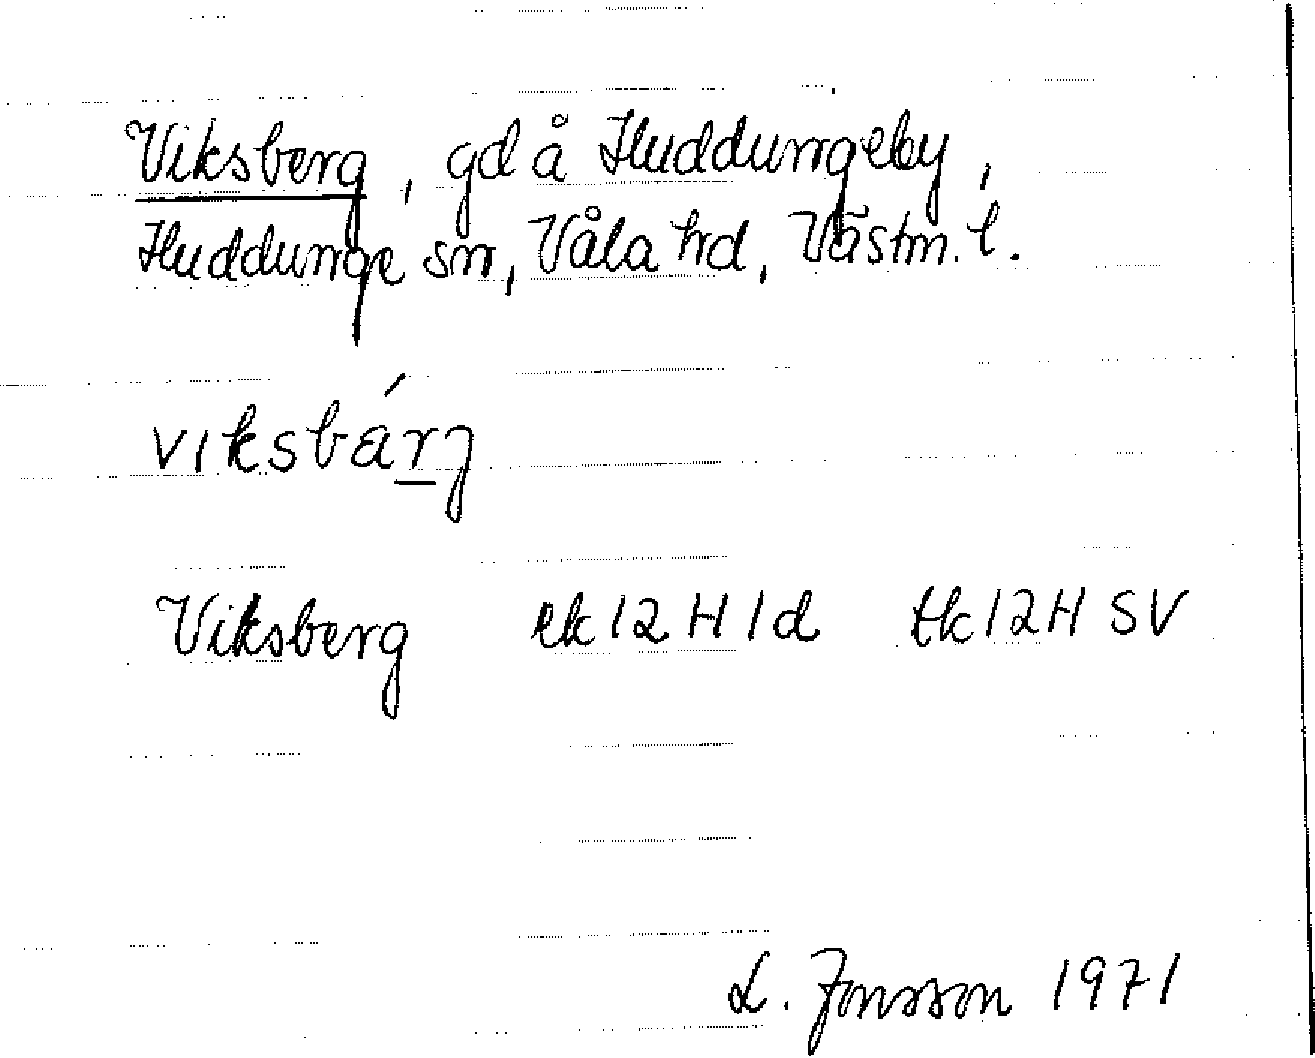 Viksberg, gd å Huddungeby,
Huddunge sn, Våla hd, Västm. l.
viksbárj
Viksberg ek 12 H 1d tk 12 H SV
L. Jonsson 1971